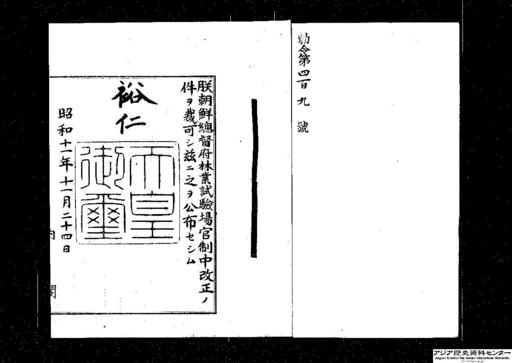 勅令第四百九號
朕朝鮮總督府林業試驗場官制中改正ノ
件ヲ裁可シ茲ニ之ヲ公布セシム
裕仁
天皇
御璽
昭和十一年十一月二十四日
内閣
アジア歴史資料センター
Japan Center for Asian Historical Records